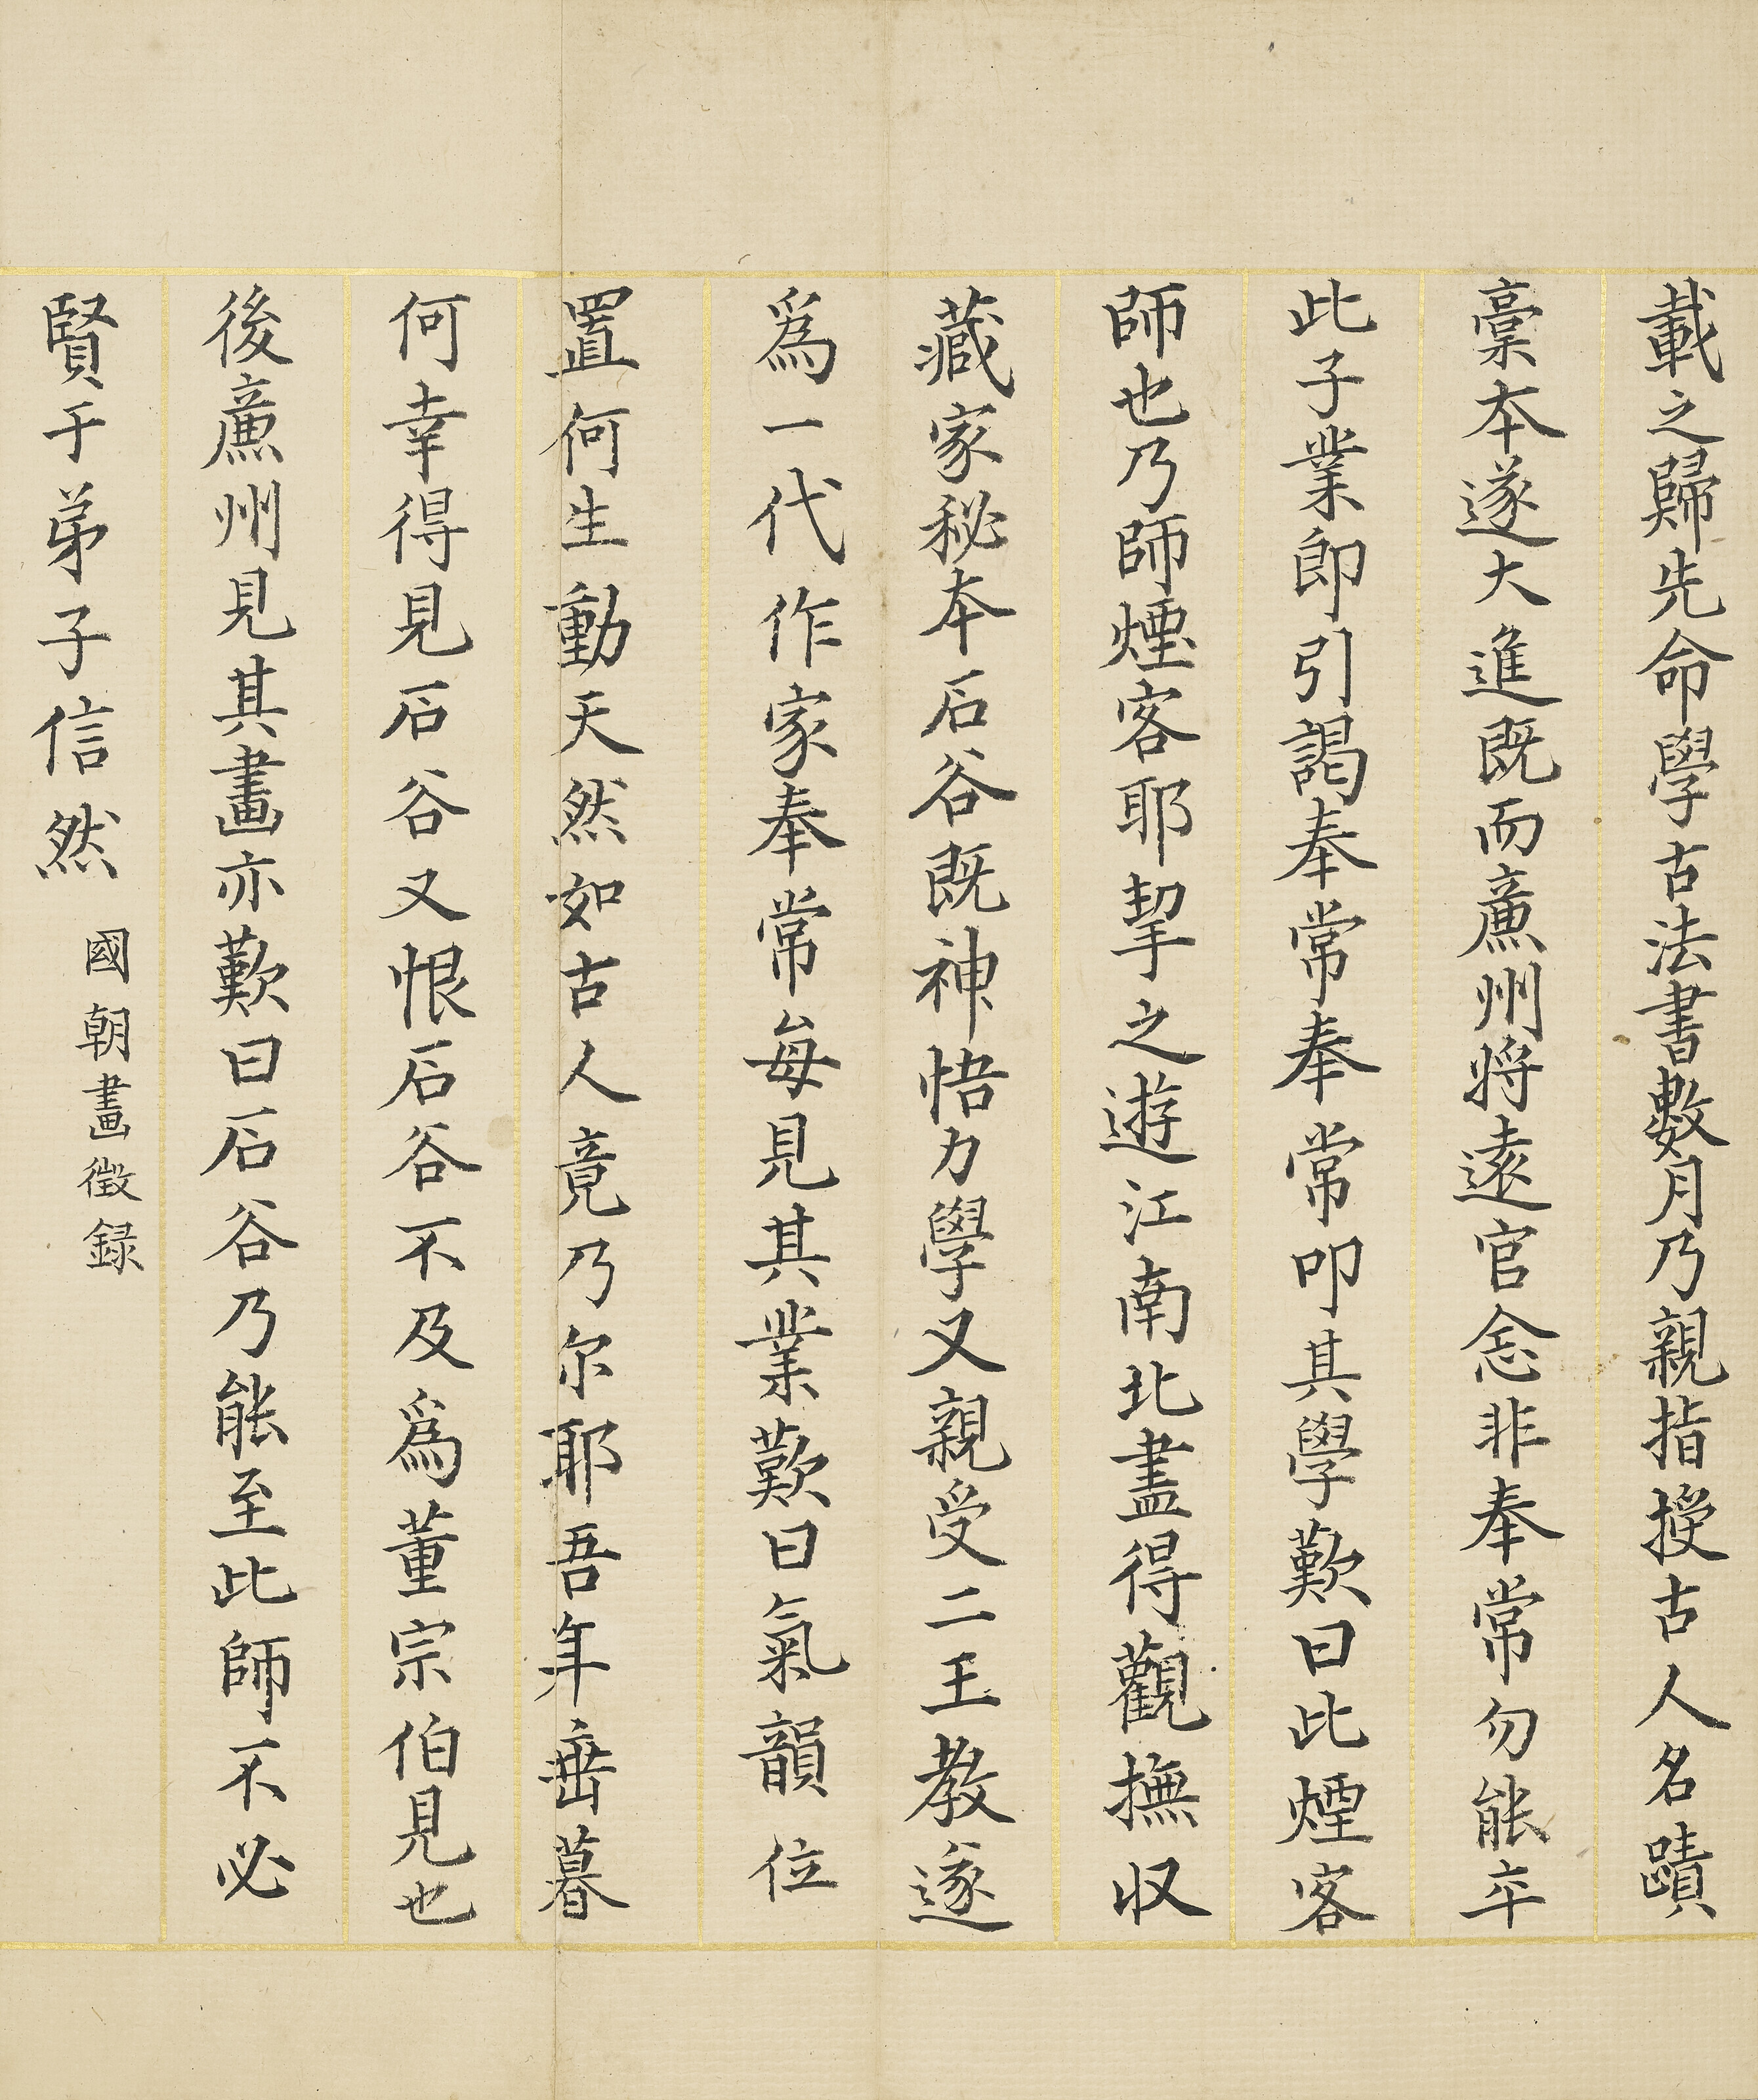 載之歸先命學古法書數月乃親指授古人名蹟
稾本遂大進既而廉州将遠官念非奉常勿能卒
此子業即引謁奉常奉常叩其學歎曰此煙客
師也乃師煙客耶挈之遊江南北盡得觀撫収
藏家秘本石谷既神悟力學又親受二王教遂
爲一代作家奉常每見其業歎曰氣韻位
置何生動天然如古人竟乃尔耶吾年垂暮
何幸得見石谷又恨石谷不及爲董宗伯見也
後廉州見其畫亦歎曰石谷乃能至此師不必
賢于弟子信然 國朝畫徵録